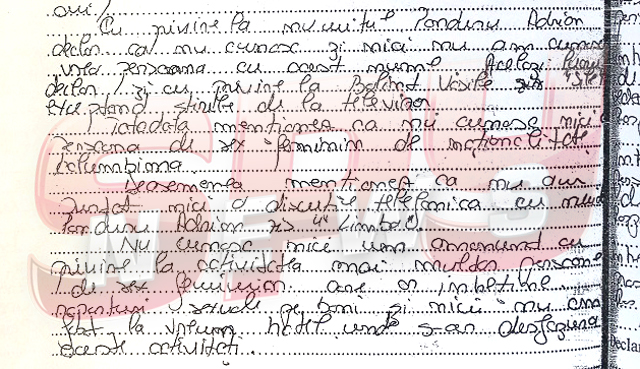 Cu privire la numitul Panduru Adrian
declar că nu cunosc și nici nu am cunos
vreo persoană cu acest nume. Același lucru
declar și cu privire la Balint Vasile zis
exceptând știrile de la televizor.
Totodată menționez că nu cunosc nici o
persoană de sex feminin de naționalitate
columbiană.
Deasemenea menționez că nu am
purtat nici o discuție telefonică cu
Panduru Adrian zis
Nu cunosc nici un amănunt cu
privire la activitatea mai multor persoane
de sex feminin care
raporturi sexuale pe bani și nici nu am
fost la vreun hotel unde s-au desfășura
aceste activități.
SPY
NEWS
Declar